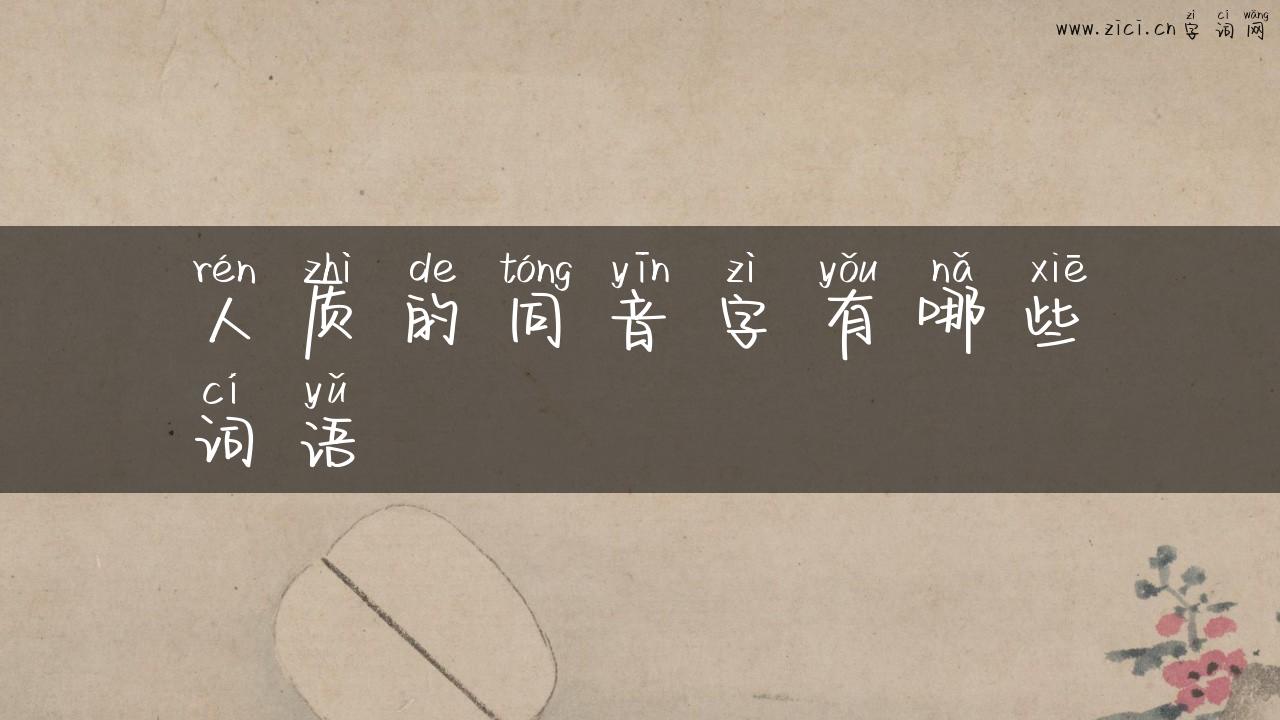 zì cí wǎng
www.zici.cn字词网
rén zhì de tóng yīn zì yǒu nǎ xiē
人质的同音字有哪些
cí yǔ
词语